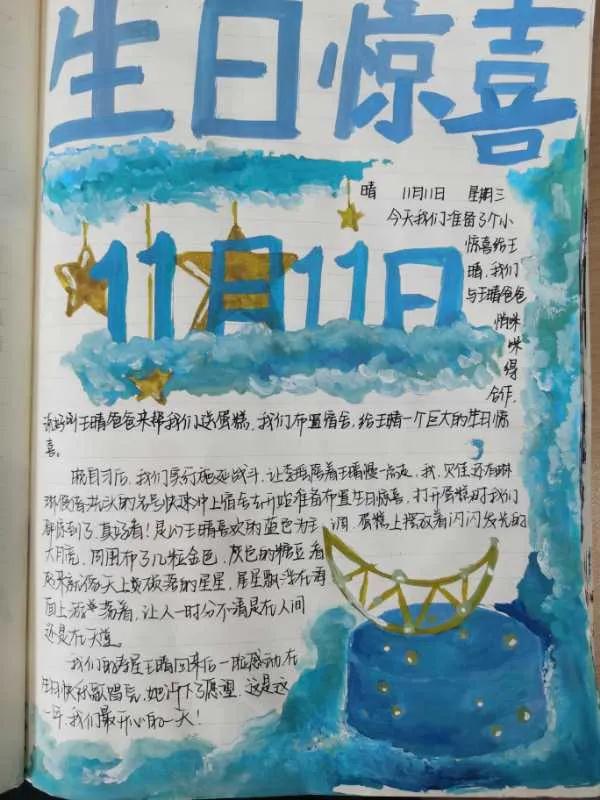 生日惊喜
晴 11月11日 星期三
11月11日
今天我们准备了个小
惊喜给王
晴,我们
与王晴爸爸
悄咪
咪
得
合作,
王晴爸爸来帮我们送蛋糕,我们布置宿舍,给王晴一个巨大的生日惊
喜。
晚自习后,我们实行拖延战斗,让李 磨着王晴慢一点走,我、
快速冲上宿舍去开始准备布置生日惊喜,打开蛋糕时我们
都惊到了,真好看!是以王晴喜欢的蓝色为主调,蛋糕上摆放着闪闪发光的
大月亮,周围布了几粒金色、灰色的糖豆看
起来就像天上 落的星星,星星飘浮在海
面上游荡着,让人一时分不清是在人间
还是在天堂。
我们的寿星王晴回来后一脸感动,在
生日快乐歌唱完,她许下了愿望,这是这
一年,我们最开心的一天!